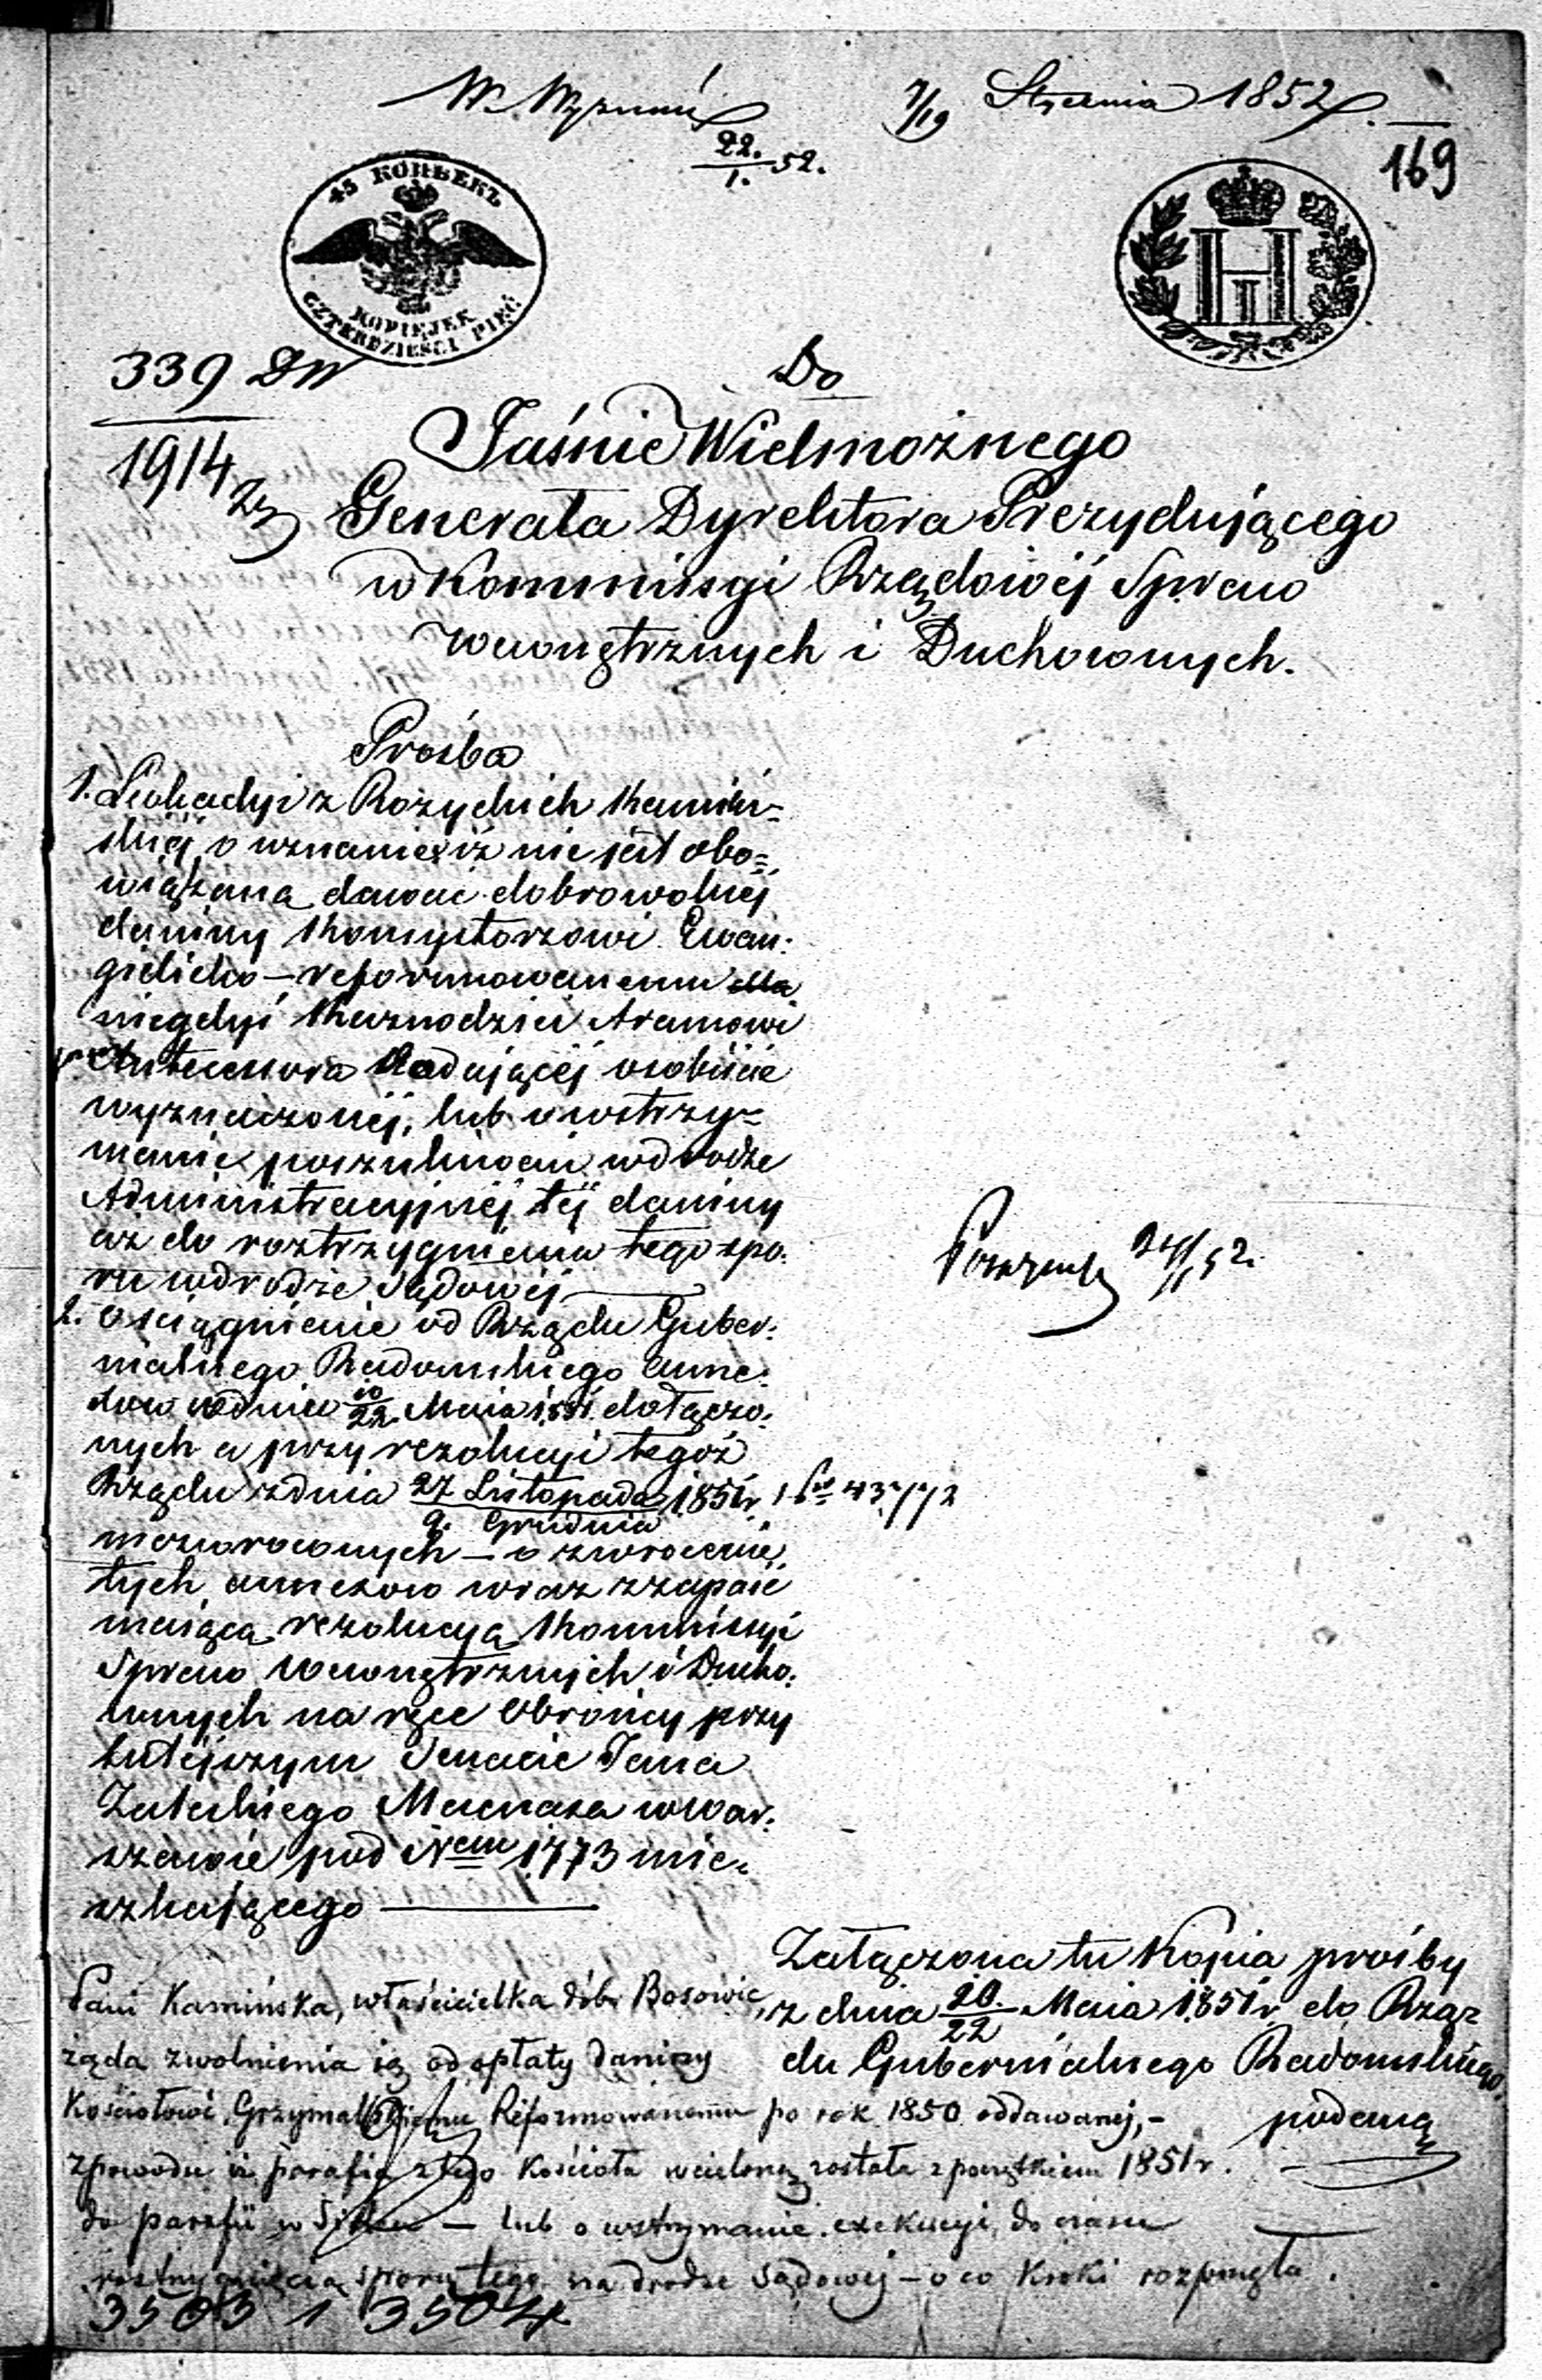 W. Wyznań
7/19 Stycznia 1852 r.
22./1. 52.
169
45 КОПѢЕКЪ
KOPIEJEK
CZTERDZIEŚCI PIĘĆ
H
I
339 DW
1914
Do
Jaśnie Wielmożnego
Generała Dyrektora Prezydującego
w Kommissyi Rządowéj Spraw
Wewnętrznych i Duchownych.
Prośba
1. Leokadyi z Rożyckich Kamiń=
skiéj, o uznanie iż nie jest obo=
wiązana dawać dobrowolnéj
daniny Konsystorzowi Ewan:
gielicko-reformowanemu
niegdyś Kaznodziei Aramowi
przez Antecessora Radającéj osobiście
wyznaczonéj, lub o wstrzy=
manie poszukiwań w drodze
Administracyjnéj téj daniny
aż do rozstrzygnienia tego spo:
ru w drodze Sądowéj
2. O ściągnienie od Rządu Guber:
nialnego Radomskiego anne:
xów w dniu 10/22 Maia 1851 dołączo:
nych a przy rezolucyi tegoż
Rządu z dnia 27 Listopada/9. Grudnia 1851 r. 43,772
niezwroconych – o zwrocenie
tych annexow wraz z zapaść
maiącą rezolucyą Kommissyi
Spraw Wewnętrznych i Ducho:
wnych na ręce Obrońcy przy
tutejszym Senacie Jana
Zaleskiego Mecenasa w War:
szawie pod Nem 1773 mie:
szkaiącego
24/1 52.
Załączona tu Kopia prośby
z dnia 10/22 Maia 1851 r. do Rzą=
du Gubernialnego Radomskiego,
podaną
Pani Kamińska, właścicielka dóbr Bosowic,
żąda zwolnienia ią od opłaty daniny
Kościołowi Ewangelicko Reformowanemu po rok 1850 oddawanej, –
z powodu iż parafia z tego Kościoła wcieloną została z początkiem 1851 r.
do parafii w – lub o wstrzymanie exekucyi, do czasu
rozstrzygnięcia sporu tego na drodze Sądowej – o co Kroki rozpoczęła.
3503 i 3504